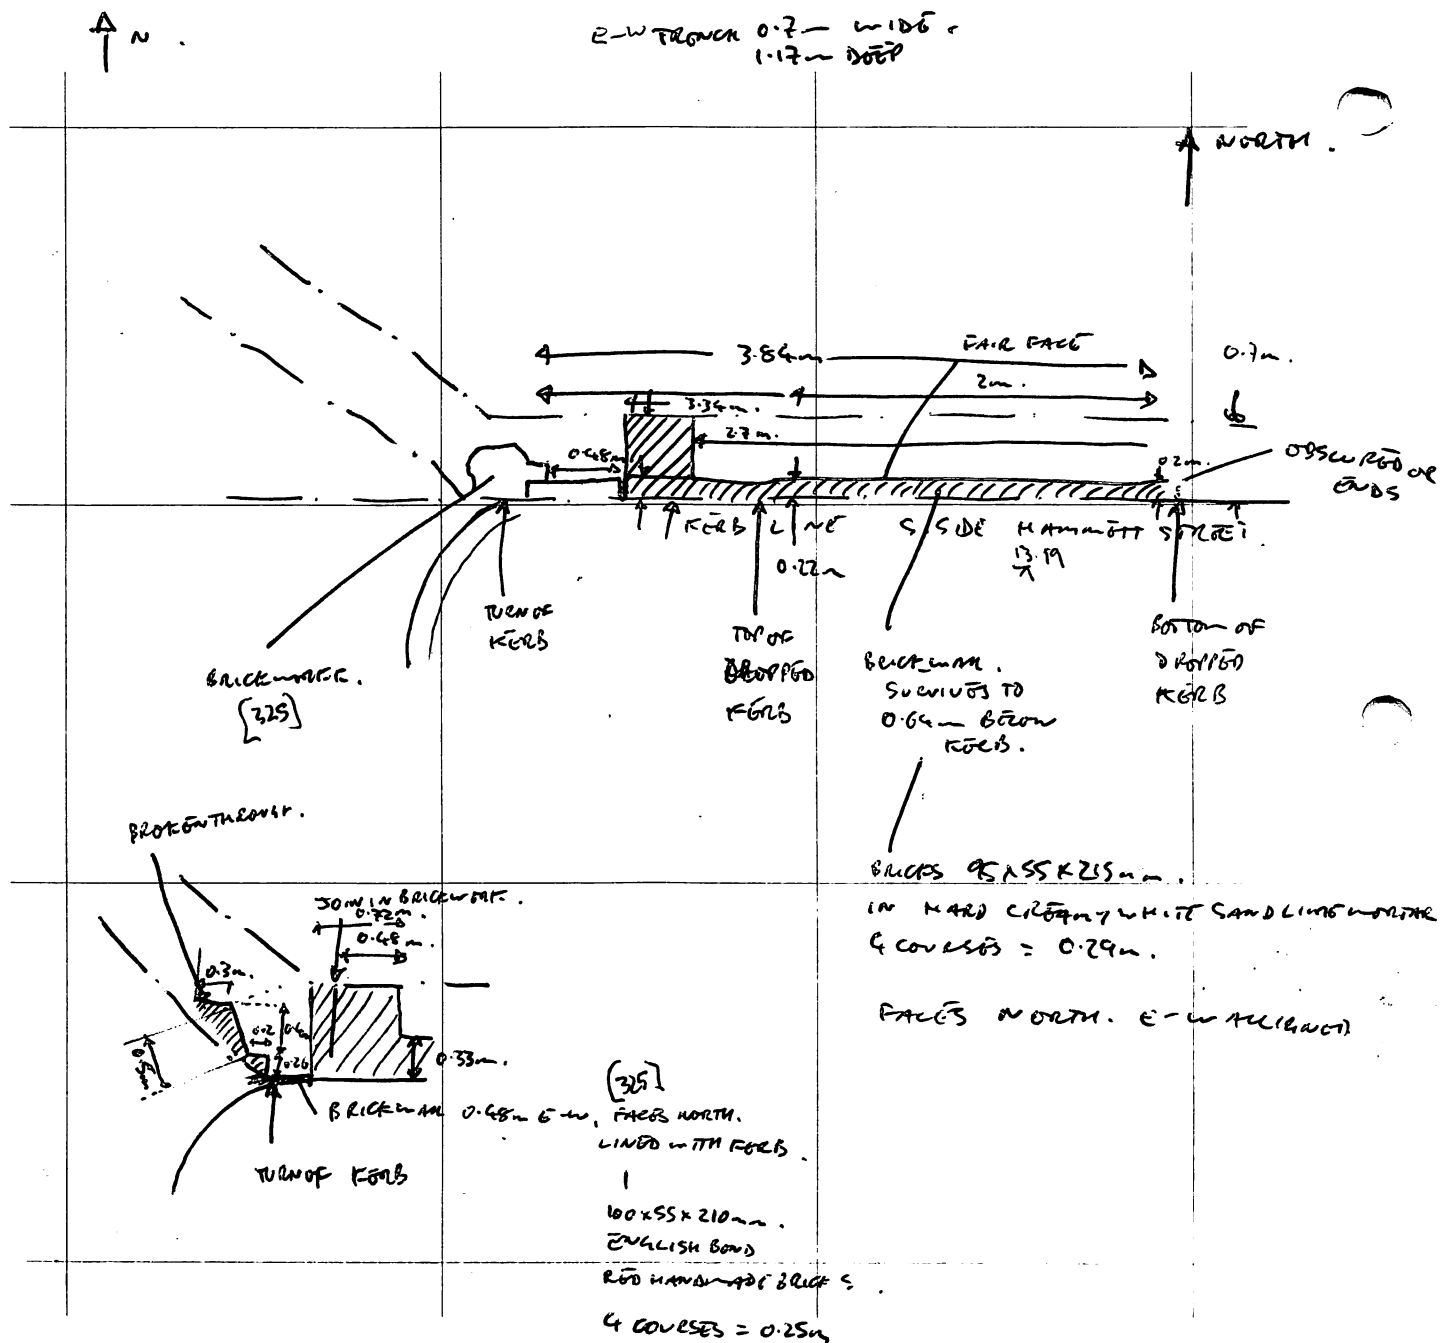 N.
E-W TRENCH 0.7m WIDE.
1.17m DEEP
NORTH.
3.84m
FAIR FACE
0.7m.
2m.
3.34m.
2.7m.
0.48m
0.2m
OBSCURED OR
ENDS
KERB LINE S. SIDE HAMMETT STREET.
13.19
0.22m
TURN OF
KERB
TOP OF
DROPPED
KERB
BOTTOM OF
DROPPED
KERB
BRICKWORK.
[325]
BRICKWALL.
SURVIVES TO
0.64m BELOW
KERB.
BROKEN THROUGH.
BRICKS 95 x 55 x 215mm.
IN HARD CREAMY WHITE SAND LIME MORTAR
4 COURSES = 0.29m.
FACES NORTH. E-W ALLIGNED
JOIN IN BRICKWORK.
0.72m.
0.48m.
0.3m.
0.2
0.26
0.5m
0.33m.
BRICKWALL 0.48m E-W, FACES NORTH.
LINED WITH KERB.
TURN OF KERB
[325]
100 x 55 x 210mm.
ENGLISH BOND
RED HANDMADE BRICKS.
4 COURSES = 0.25m